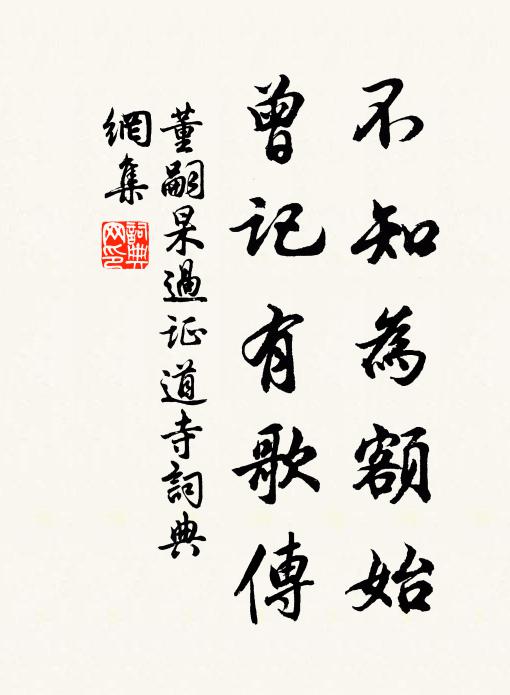 不知為額始
曾記有歌傳
董嗣杲過证道寺詞典
網集
詞典网印